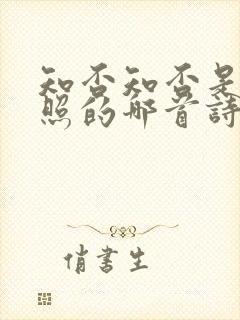 知否知否是
照的哪首詩
俏書生